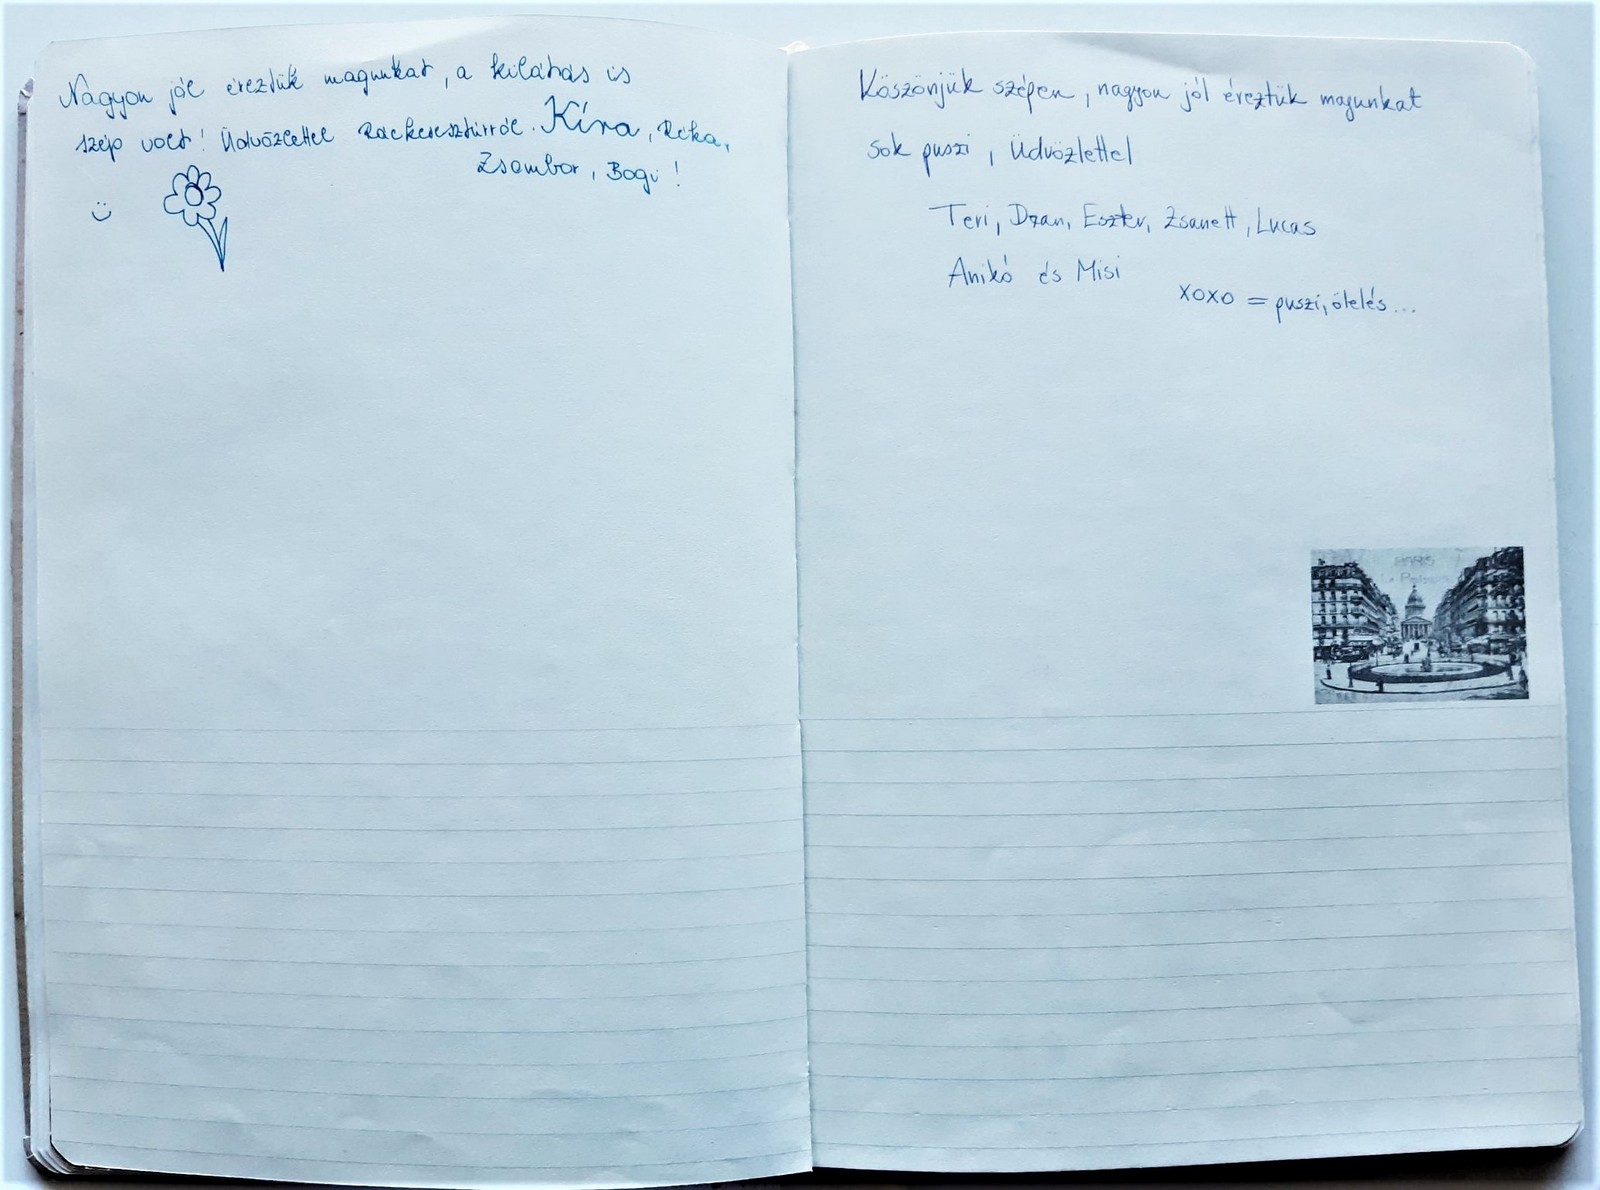 Nagyon jól éreztük magunkat, a kilátás is
szép volt! Üdvözlettel Ráckeresztúrról. Kíra, Réka,
Zsombor, Bogi!
Köszönjük szépen, nagyon jól éreztük magunkat
sok puszi, Üdvözlettel
Teri, Dzan, Eszter, Zsanett, Lucas
Anikó és Misi
xoxo = puszi, ölelés...
PARIS